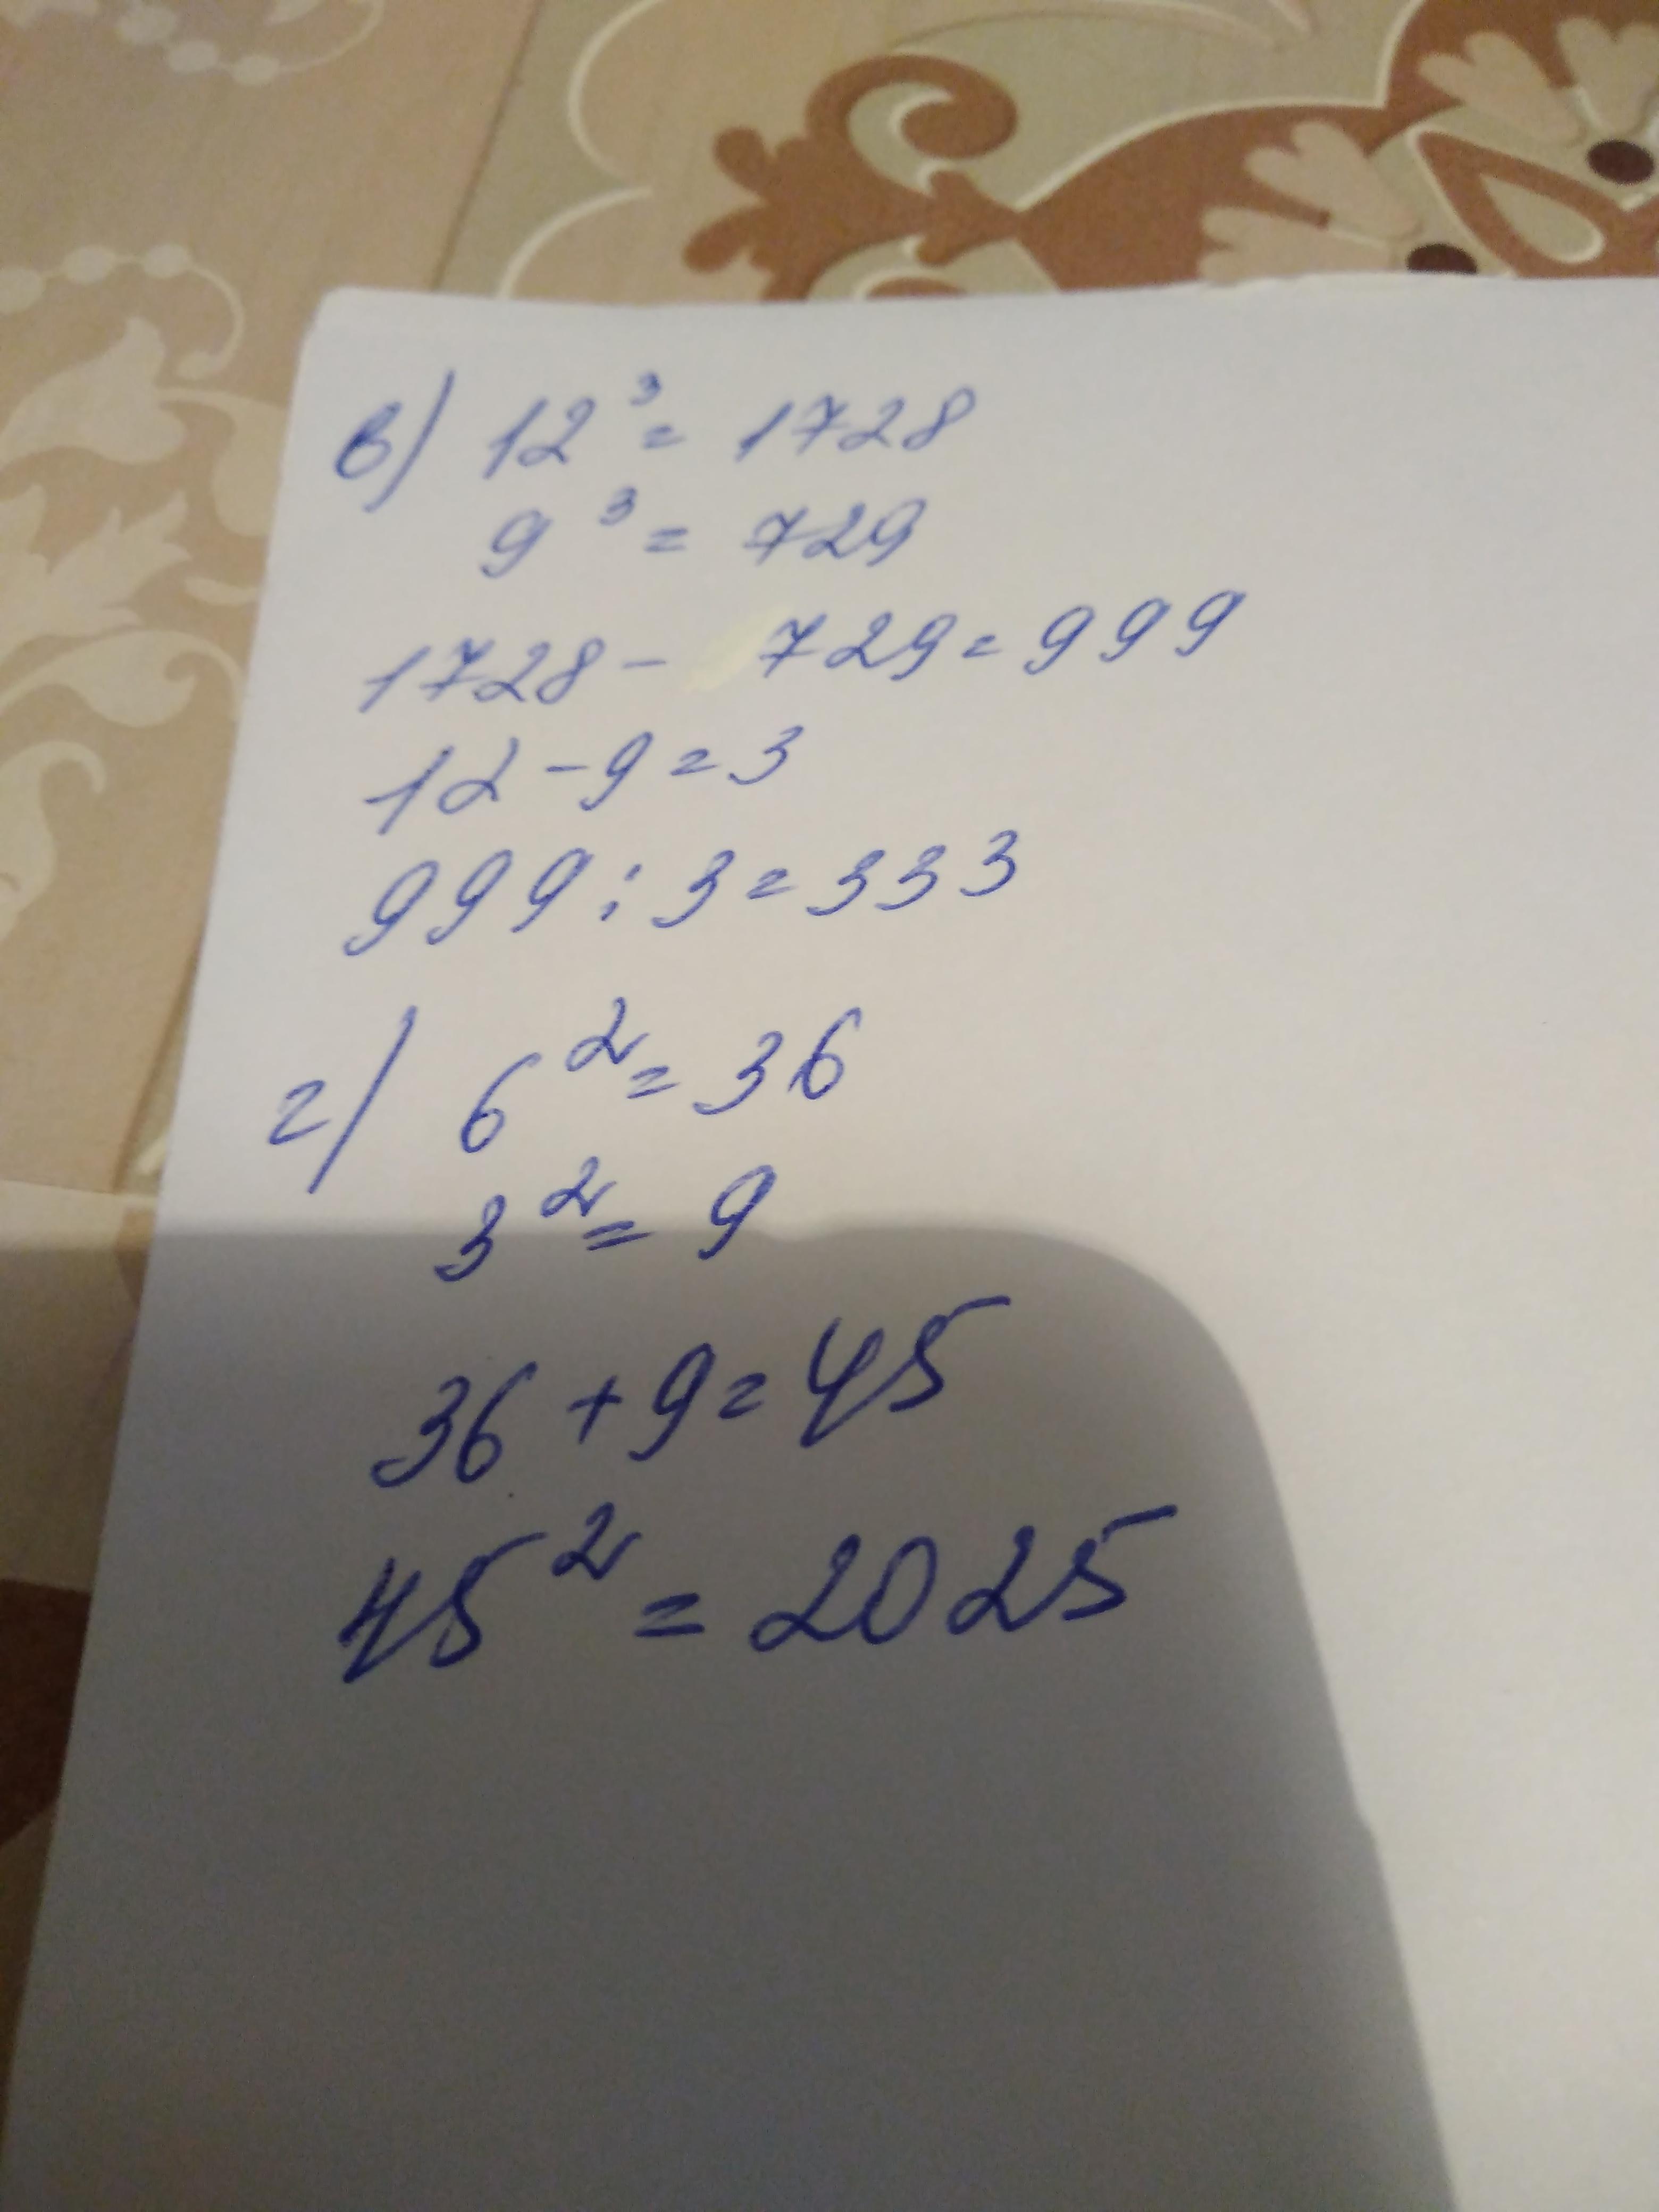 в) 12³ = 1728
9³ = 729
1728 - 729 = 999
12 - 9 = 3
999 : 3 = 333
г) 6² = 36
3² = 9
36 + 9 = 45
45² = 2025